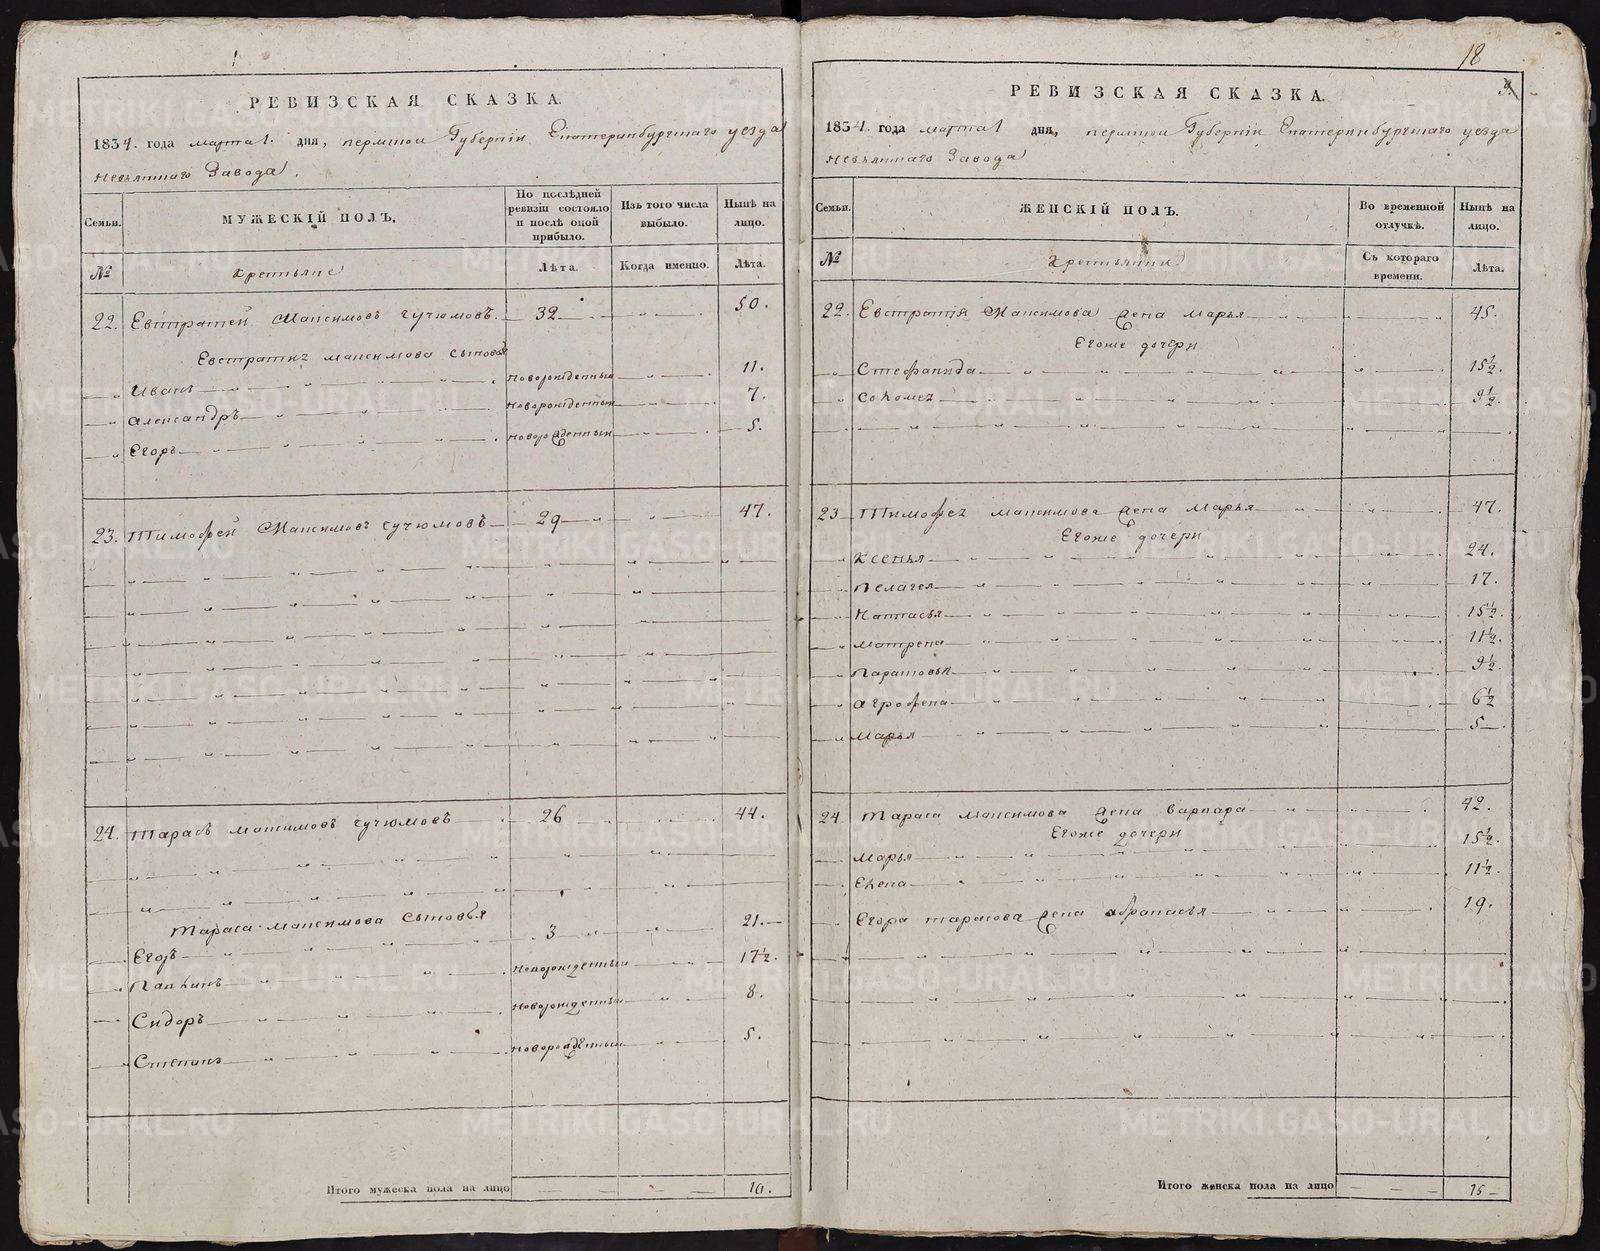 РЕВИЗСКАЯ СКАЗКА.
1834. года марта 1. дня, пермской Губернiи Екатеринбургскаго уезда
невьянскаго Завода.
Семьи.
МУЖЕСКIЙ ПОЛЪ.
По послѣдней ревизiи состояло и послѣ оной прибыло.
Изъ того числа выбыло.
Нынѣ на лицо.
№
крестьяне
Лѣта.
Когда именно.
Лѣта.
22. Евстратей Максимовъ 32 50.
Евстратиа максимова сыновья
Иванъ новорожденный 11.
александръ новорожденный 7.
Егоръ новорожденный 5.
23. Тимофей Максимовъ 29 47.
24. Тарасъ максимовъ 26 44.
Тараса максимова сыновья
Егоръ 3 21.
новорожденный 17½.
Сидоръ новорожденный 8.
Степанъ новорожденный 5.
Итого мужеска пола на лицо 10.
18
9.
РЕВИЗСКАЯ СКАЗКА.
1834. года марта 1 дня, пермской Губернiи Екатеринбургскаго уезда
невьянскаго Завода
Семьи.
ЖЕНСКIЙ ПОЛЪ.
Во временной отлучкѣ.
Нынѣ на лицо.
№
крестьянки
Съ котораго времени.
Лѣта.
22. Евстратiя Максимова жена Марья 45.
Егоже дочери
Стефанида 15½.
9½.
23 Тимофея максимова жена Марья 47.
Егоже дочери
Ксенья 24.
Пелагея 17.
Настасья 15½.
матрена 11½.
9½.
агрофена 6½
Марья 5
24. Тараса максимова жена варвара 42.
Егоже дочери
Марья 15½.
Елена 11½.
Егора тарасова жена афанасья 19.
Итого женска пола на лицо 15